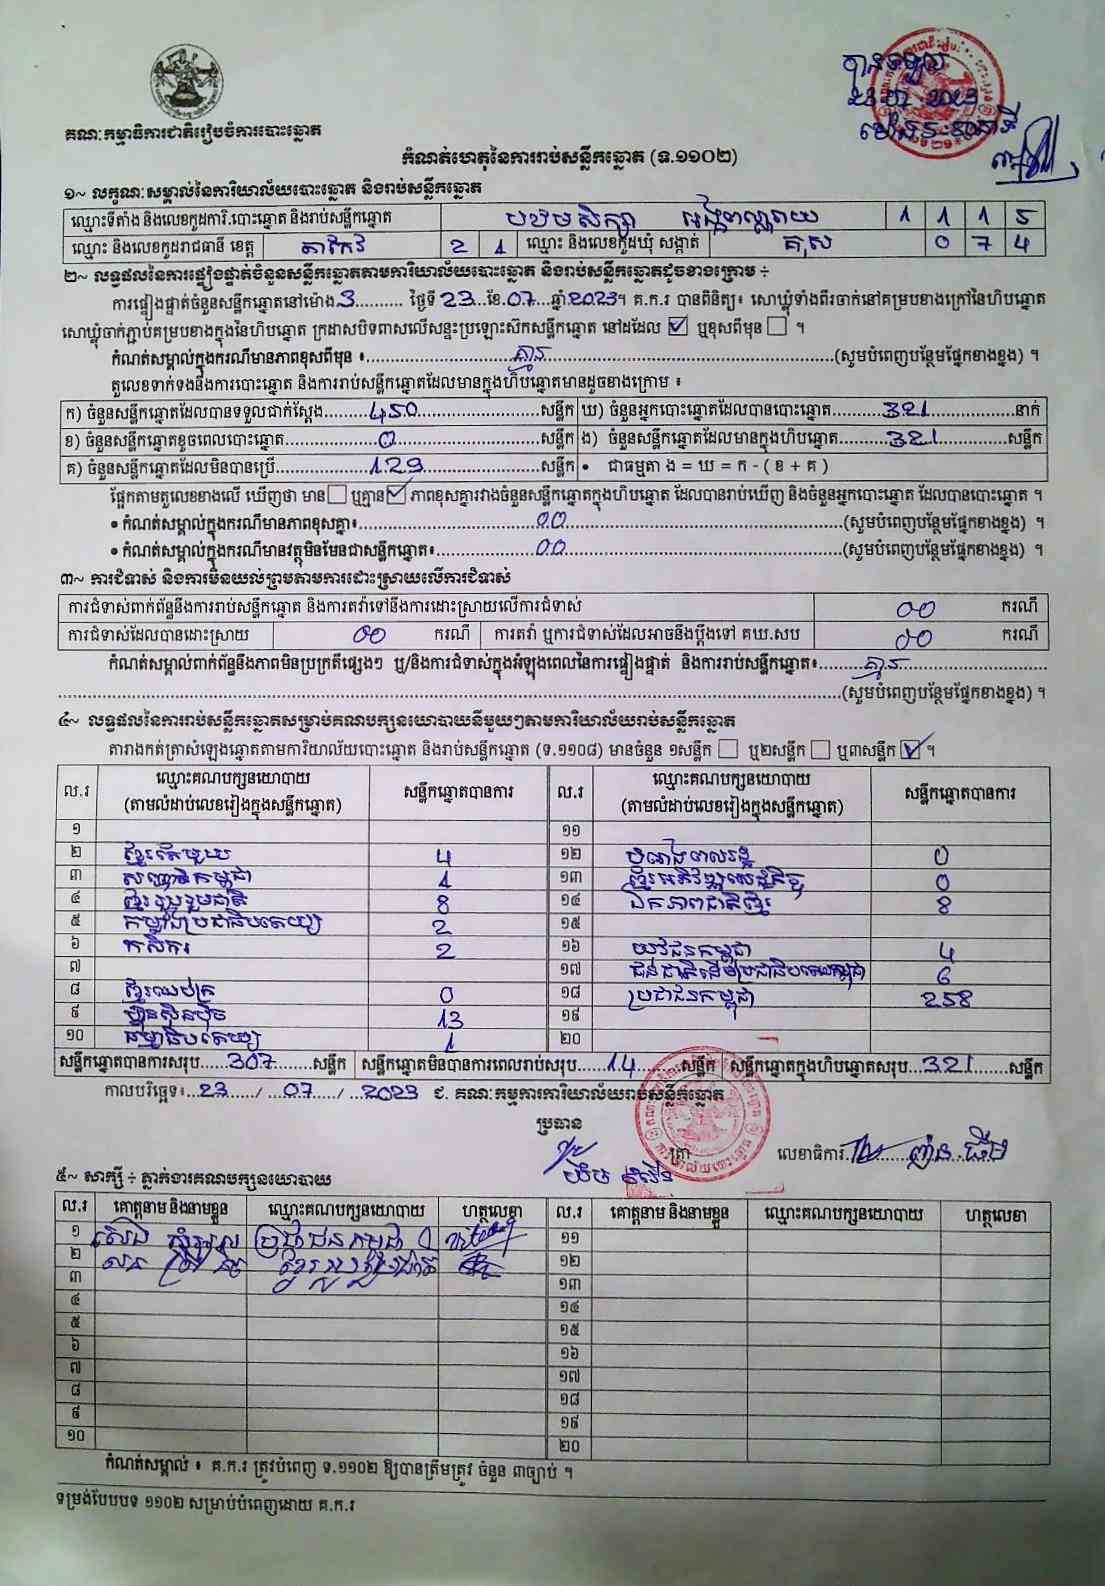 បានទទួល
23 07 2023
គណៈកម្មាធិការជាតិរៀបចំការបោះឆ្នោត
កំណត់ហេតុនៃការរាប់សន្លឹកឆ្នោត (ទ.១១០២)
១~ លក្ខណៈសម្គាល់នៃការិយាល័យបោះឆ្នោត និងរាប់សន្លឹកឆ្នោត
ឈ្មោះទីតាំង និងលេខកូដការិ.បោះឆ្នោត និងរាប់សន្លឹកឆ្នោត បឋមសិក្សា អង្គតាណូរាយ 1 1 1 5
ឈ្មោះ និងលេខកូដរាជធានី ខេត្ត តាកែវ 2 1 ឈ្មោះ និងលេខកូដឃុំ សង្កាត់ គុស 0 7 4
២~ លទ្ធផលនៃការផ្ទៀងផ្ទាត់ចំនួនសន្លឹកឆ្នោតតាមការិយាល័យបោះឆ្នោត និងរាប់សន្លឹកឆ្នោតដូចខាងក្រោម ÷
ការផ្ទៀងផ្ទាត់ចំនួនសន្លឹកឆ្នោតនៅម៉ោង 3 ......... ថ្ងៃទី 23 ...ខែ. 07 ...ឆ្នាំ 2023 ។ គ.ក.រ បានពិនិត្យ៖ សោឃ្លុំទាំងពីរចាក់នៅគម្របខាងក្រៅនៃហិបឆ្នោត
សោឃ្លុំចាក់ភ្ជាប់គម្របខាងក្នុងនៃហិបឆ្នោត ក្រដាសបិទពាសលើសន្ទះប្រឡោះស៊កសន្លឹកឆ្នោត នៅដដែល ☑ ឬខុសពីមុន ☐ ។
កំណត់សម្គាល់ក្នុងករណីមានភាពខុសពីមុន ៖ ........ គ្មាន ........ (សូមបំពេញបន្ថែមផ្នែកខាងខ្នង) ។
តួលេខទាក់ទងនឹងការបោះឆ្នោត និងការរាប់សន្លឹកឆ្នោតដែលមានក្នុងហិបឆ្នោតមានដូចខាងក្រោម ៖
ក) ចំនួនសន្លឹកឆ្នោតដែលបានទទួលជាក់ស្តែង........ 450 ........សន្លឹក ឃ) ចំនួនអ្នកបោះឆ្នោតដែលបានបោះឆ្នោត........ 321 ........នាក់
ខ) ចំនួនសន្លឹកឆ្នោតខូចពេលបោះឆ្នោត........ 0 ........សន្លឹក ង) ចំនួនសន្លឹកឆ្នោតដែលមានក្នុងហិបឆ្នោត........ 321 ........សន្លឹក
គ) ចំនួនសន្លឹកឆ្នោតដែលមិនបានប្រើ........ 129 ........សន្លឹក • ជាធម្មតា ង = ឃ = ក - ( ខ + គ )
ផ្អែកតាមតួលេខខាងលើ ឃើញថា មាន ☐ ឬគ្មាន ☑ ភាពខុសគ្នារវាងចំនួនសន្លឹកឆ្នោតក្នុងហិបឆ្នោត ដែលបានរាប់ឃើញ និងចំនួនអ្នកបោះឆ្នោត ដែលបានបោះឆ្នោត ។
• កំណត់សម្គាល់ក្នុងករណីមានភាពខុសគ្នា៖........ 00 ........(សូមបំពេញបន្ថែមផ្នែកខាងខ្នង) ។
• កំណត់សម្គាល់ក្នុងករណីមានវត្ថុមិនមែនជាសន្លឹកឆ្នោត៖........ 00 ........(សូមបំពេញបន្ថែមផ្នែកខាងខ្នង) ។
៣~ ការជំទាស់ និងការមិនយល់ព្រមតាមការដោះស្រាយលើការជំទាស់
ការជំទាស់ពាក់ព័ន្ធនឹងការរាប់សន្លឹកឆ្នោត និងការតវ៉ាទៅនឹងការដោះស្រាយលើការជំទាស់ 00 ករណី
ការជំទាស់ដែលបានដោះស្រាយ 00 ករណី ការតវ៉ា ឬការជំទាស់ដែលអាចនឹងប្តឹងទៅ គឃ.សប 00 ករណី
កំណត់សម្គាល់ពាក់ព័ន្ធនឹងភាពមិនប្រក្រតីផ្សេងៗ ឬ/និងការជំទាស់ក្នុងអំឡុងពេលនៃការផ្ទៀងផ្ទាត់ និងការរាប់សន្លឹកឆ្នោត៖........ គ្មាន ........
........(សូមបំពេញបន្ថែមផ្នែកខាងខ្នង) ។
៤~ លទ្ធផលនៃការរាប់សន្លឹកឆ្នោតសម្រាប់គណបក្សនយោបាយនីមួយៗតាមការិយាល័យរាប់សន្លឹកឆ្នោត
តារាងកត់ត្រាសំឡេងឆ្នោតតាមការិយាល័យបោះឆ្នោត និងរាប់សន្លឹកឆ្នោត (ទ.១១០៨) មានចំនួន ១សន្លឹក ☐ ឬ២សន្លឹក ☐ ឬ៣សន្លឹក ☑ ។
ល.រ ឈ្មោះគណបក្សនយោបាយ (តាមលំដាប់លេខរៀងក្នុងសន្លឹកឆ្នោត) សន្លឹកឆ្នោតបានការ ល.រ ឈ្មោះគណបក្សនយោបាយ (តាមលំដាប់លេខរៀងក្នុងសន្លឹកឆ្នោត) សន្លឹកឆ្នោតបានការ
១ ១១
២ ខ្មែរតែមួយ 4 ១២ បំរើជាតិ 0
៣ សញ្ជាតិកម្ពុជា 1 ១៣ ខ្មែរអភិវឌ្ឍសេដ្ឋកិច្ច 0
៤ ខ្មែររួបរួមជាតិ 8 ១៤ ឯកភាពជាតិខ្មែរ 8
៥ កម្លាំងប្រជាធិបតេយ្យ 2 ១៥
៦ កសិករ 2 ១៦ យុវជនកម្ពុជា 4
៧ ១៧ ជនជាតិដើមប្រជាធិបតេយ្យកម្ពុជា 6
៨ ខ្មែរឈប់ក្រ 0 ១៨ ប្រជាជនកម្ពុជា 258
៩ ហ្វ៊ុនស៊ិនប៉ិច 13 ១៩
១០ ធម្មាធិបតេយ្យ 1 ២០
សន្លឹកឆ្នោតបានការសរុប...... 307 ......សន្លឹក សន្លឹកឆ្នោតមិនបានការពេលរាប់សរុប...... 14 ......សន្លឹក សន្លឹកឆ្នោតក្នុងហិបឆ្នោតសរុប... 321 ......សន្លឹក
កាលបរិច្ឆេទ៖... 23 ....../ ... 07 ....../ ... 2023 ជ. គណៈកម្មការការិយាល័យរាប់សន្លឹកឆ្នោត
ប្រធាន
ត្រា លេខាធិការ
៥~ សាក្សី ÷ ភ្នាក់ងារគណបក្សនយោបាយ
ល.រ គោត្តនាម និងនាមខ្លួន ឈ្មោះគណបក្សនយោបាយ ហត្ថលេខា ល.រ គោត្តនាម និងនាមខ្លួន ឈ្មោះគណបក្សនយោបាយ ហត្ថលេខា
១ ប្រជាជនកម្ពុជា ១១
២ ខ្មែររួបរួមជាតិ ១២
៣ ១៣
៤ ១៤
៥ ១៥
៦ ១៦
៧ ១៧
៨ ១៨
៩ ១៩
១០ ២០
កំណត់សម្គាល់ ៖ គ.ក.រ ត្រូវបំពេញ ទ.១១០២ ឱ្យបានត្រឹមត្រូវ ចំនួន ៣ច្បាប់ ។
ទម្រង់បែបបទ ១១០២ សម្រាប់បំពេញដោយ គ.ក.រ